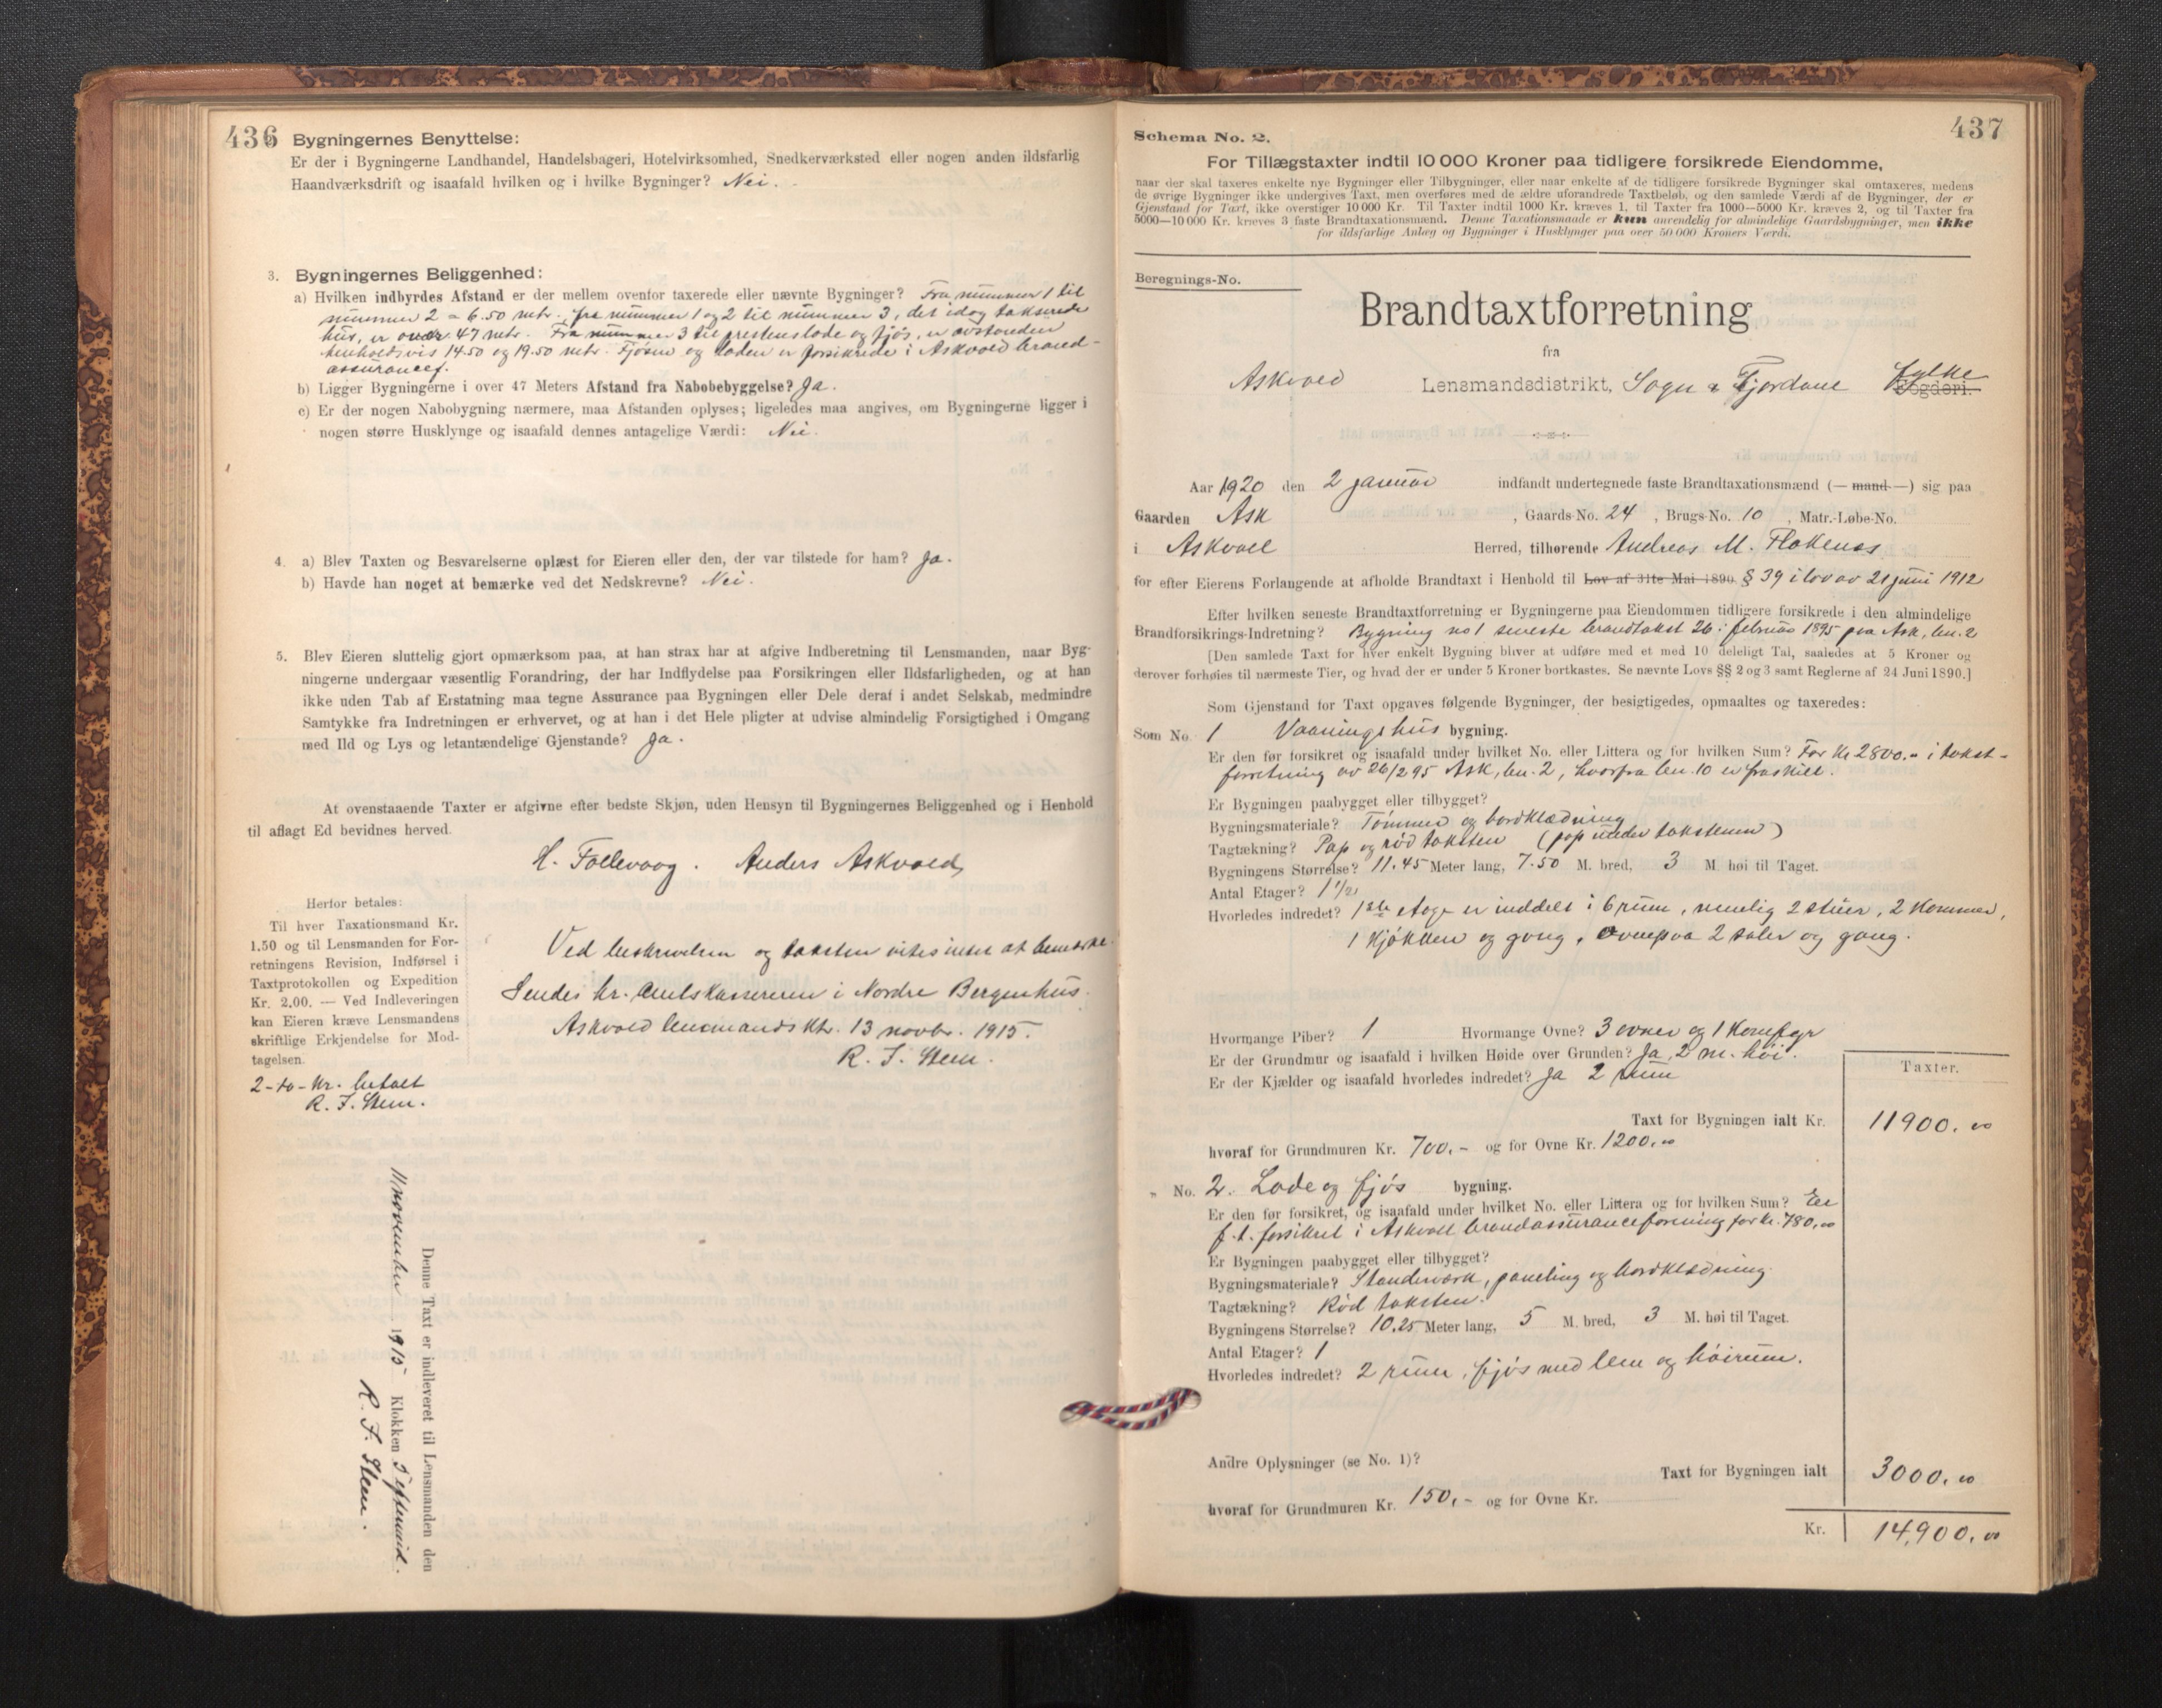 436 Bygningernes Benyttelse:
Er der i Bygningerne Landhandel, Handelsbageri, Hotelvirksomhed, Snedkerværksted eller nogen anden ildsfarlig
Haandværksdrift og isaafald hvilken og i hvilke Bygninger? Nei.
3. Bygningernes Beliggenhed:
a) Hvilken indbyrdes Afstand er der mellem ovenfor taxerede eller nævnte Bygninger? Fra nummer 1 til
nummer 2 = 6.50 mtr. fra nummer 1 og 2 til nummer 3, det idag takserede
hus, er over 47 mtr. Fra nummer 3 til prestens lade og fjös, er avstanden
henholdsvis 14.50 og 19.50 mtr. Fjösen og laden er forsikrede i Askvold brand-
assurancef.
b) Ligger Bygningerne i over 47 Meters Afstand fra Nabobebyggelse? Ja.
c) Er der nogen Nabobygning nærmere, maa Afstanden oplyses; ligeledes maa angives, om Bygningerne ligger i
nogen større Husklynge og isaafald dennes antagelige Værdi: Nei.
4. a) Blev Taxten og Besvarelserne oplæst for Eieren eller den, der var tilstede for ham? Ja.
b) Havde han noget at bemærke ved det Nedskrevne? Nei.
5. Blev Eieren sluttelig gjort opmærksom paa, at han strax har at afgive Indberetning til Lensmanden, naar Byg-
ningerne undergaar væsentlig Forandring, der har Indflydelse paa Forsikringen eller Ildsfarligheden, og at han
ikke uden Tab af Erstatning maa tegne Assurance paa Bygningen eller Dele deraf i andet Selskab, medmindre
Samtykke fra Indretningen er erhvervet, og at han i det Hele pligter at udvise almindelig Forsigtighed i Omgang
med Ild og Lys og letantændelige Gjenstande? Ja.
At ovenstaaende Taxter er afgivne efter bedste Skjøn, uden Hensyn til Bygningernes Beliggenhed og i Henhold
til aflagt Ed bevidnes herved.
H. Follevaag. Anders Askvold,
Herfor betales:
Til hver Taxationsmand Kr.
1.50 og til Lensmanden for For-
retningens Revision, Indførsel i
Taxtprotokollen og Expedition
Kr. 2.00. — Ved Indleveringen
kan Eieren kræve Lensmandens
skriftlige Erkjendelse for Mod-
tagelsen.
2-to-kr. betalt
R. J. Stem.
Ved beskrivelsen og taksten vites intet at bemerke.
Sendes hr. amtskassereren i Nordre Bergenhus.
Askvold lensmandsktr. 13 novbr. 1915.
R. J. Stem.
Denne Taxt er indleveret til Lensmanden den
11 november 1915 Klokken 5 eftermid.
R. J. Stem.
Schema No. 2. 437
For Tillægstaxter indtil 10 000 Kroner paa tidligere forsikrede Eiendomme,
naar der skal taxeres enkelte nye Bygninger eller Tilbygninger, eller naar enkelte af de tidligere forsikrede Bygninger skal omtaxeres, medens
de øvrige Bygninger ikke undergives Taxt, men overføres med de ældre uforandrede Taxtbeløb, og den samlede Værdi af de Bygninger, der er
Gjenstand for Taxt, ikke overstiger 10 000 Kr. Til Taxter indtil 1000 Kr. kræves 1, til Taxter fra 1000—5000 Kr. kræves 2, og til Taxter fra
5000—10 000 Kr. kræves 3 faste Brandtaxationsmænd. Denne Taxationsmaade er kun anvendelig for almindelige Gaardsbygninger, men ikke
for ildsfarlige Anlæg og Bygninger i Husklynger paa over 50 000 Kroners Værdi.
Beregnings-No.
Brandtaxtforretning
fra
Askvold Lensmandsdistrikt, Sogn & Fjordane fylke Fogderi.
Aar 1920 den 2 januar indfandt undertegnede faste Brandtaxationsmænd (— mand —) sig paa
Gaarden Ask, Gaards-No. 24, Brugs-No. 10, Matr.-Løbe-No.
i Askvoll Herred, tilhørende Andreas M. Flokenes
for efter Eierens Forlangende at afholde Brandtaxt i Henhold til Lov af 31te Mai 1890. § 39 i lov av 21 juni 1912
Efter hvilken seneste Brandtaxtforretning er Bygningerne paa Eiendommen tidligere forsikrede i den almindelige
Brandforsikrings-Indretning? Bygning no 1 seneste brandtakst 26. februar 1895 paa Ask, bn. 2
[Den samlede Taxt for hver enkelt Bygning bliver at udføre med et med 10 deleligt Tal, saaledes at 5 Kroner og
derover forhøies til nærmeste Tier, og hvad der er under 5 Kroner bortkastes. Se nævnte Lovs §§ 2 og 3 samt Reglerne af 24 Juni 1890.]
Som Gjenstand for Taxt opgaves følgende Bygninger, der besigtigedes, opmaaltes og taxeredes:
Som No. 1 Vaaningshus bygning.
Er den før forsikret og isaafald under hvilket No. eller Littera og for hvilken Sum? For kr 2800.- i takst-
forretning av 26/2 95 Ask, bn. 2, hvorfra bn. 10 er fraskilt.
Er Bygningen paabygget eller tilbygget?
Bygningsmateriale? Tömmer og bordklædning
Tagtækning? Pap og röd taksten (pap under takstenen)
Bygningens Størrelse? 11.45 Meter lang, 7.50 M. bred, 3 M. høi til Taget.
Antal Etager? 1 1/2
Hvorledes indredet? 1ste etage er inddelt i 6 rum, nemlig 2 stuer, 2 kammer,
1 kjökken og gang, ovenpaa 2 saler og gang.
Hvormange Piber? 1 Hvormange Ovne? 3 ovner og 1 komfyr
Er der Grundmur og isaafald i hvilken Høide over Grunden? Ja, 2 m. höi.
Er der Kjælder og isaafald hvorledes indredet? Ja 2 rum
Taxter.
Taxt for Bygningen ialt Kr. 11900.00
hvoraf for Grundmuren Kr. 700.- og for Ovne Kr. 1200.00
„ No. 2. Lade og fjös bygning.
Er den før forsikret, og isaafald under hvilket No. eller Littera og for hvilken Sum? Er
f.t. forsikret i Askvoll brandassuranceforening for kr. 780.00
Er Bygningen paabygget eller tilbygget?
Bygningsmateriale? Standerverk, paneling og bordklædning.
Tagtækning? Röd taksten.
Bygningens Størrelse? 10.25 Meter lang, 5 M. bred, 3 M. høi til Taget.
Antal Etager? 1
Hvorledes indredet? 2 rum, fjös med lem og höirum.
Andre Oplysninger (se No. 1)?
Taxt for Bygningen ialt 3000.00
hvoraf for Grundmuren Kr. 150.- og for Ovne Kr.
Kr. 14,900.00